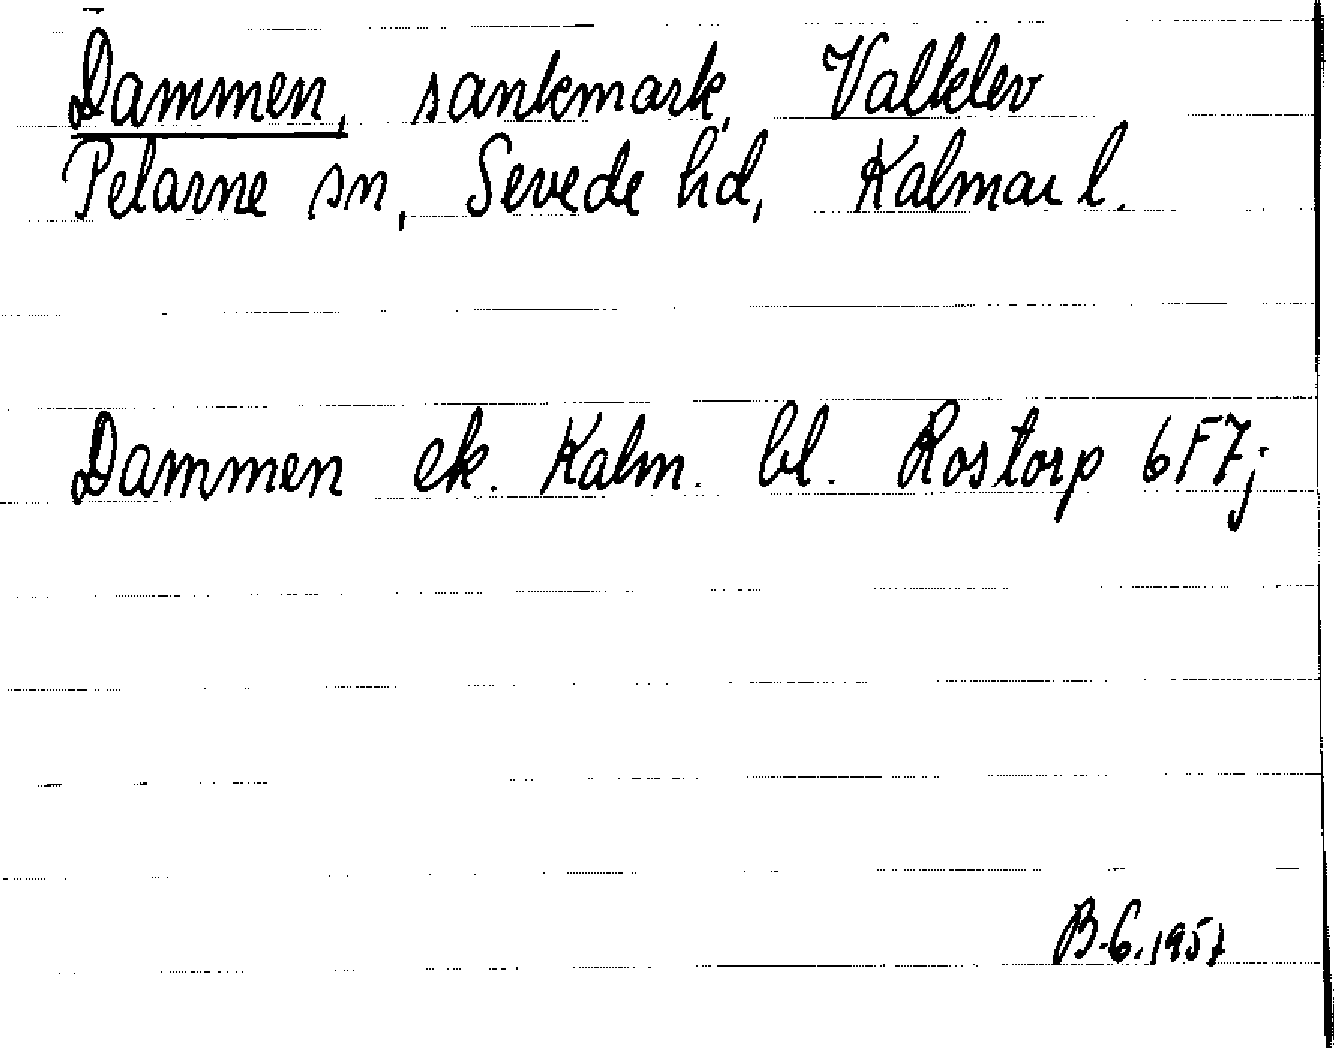 Dammen, sankmark, Valklev
Pelarne sn, Sevede hd, Kalmar l.
Dammen ek. Kalm. bl. Rostorp 6F7j
B.G. 1957